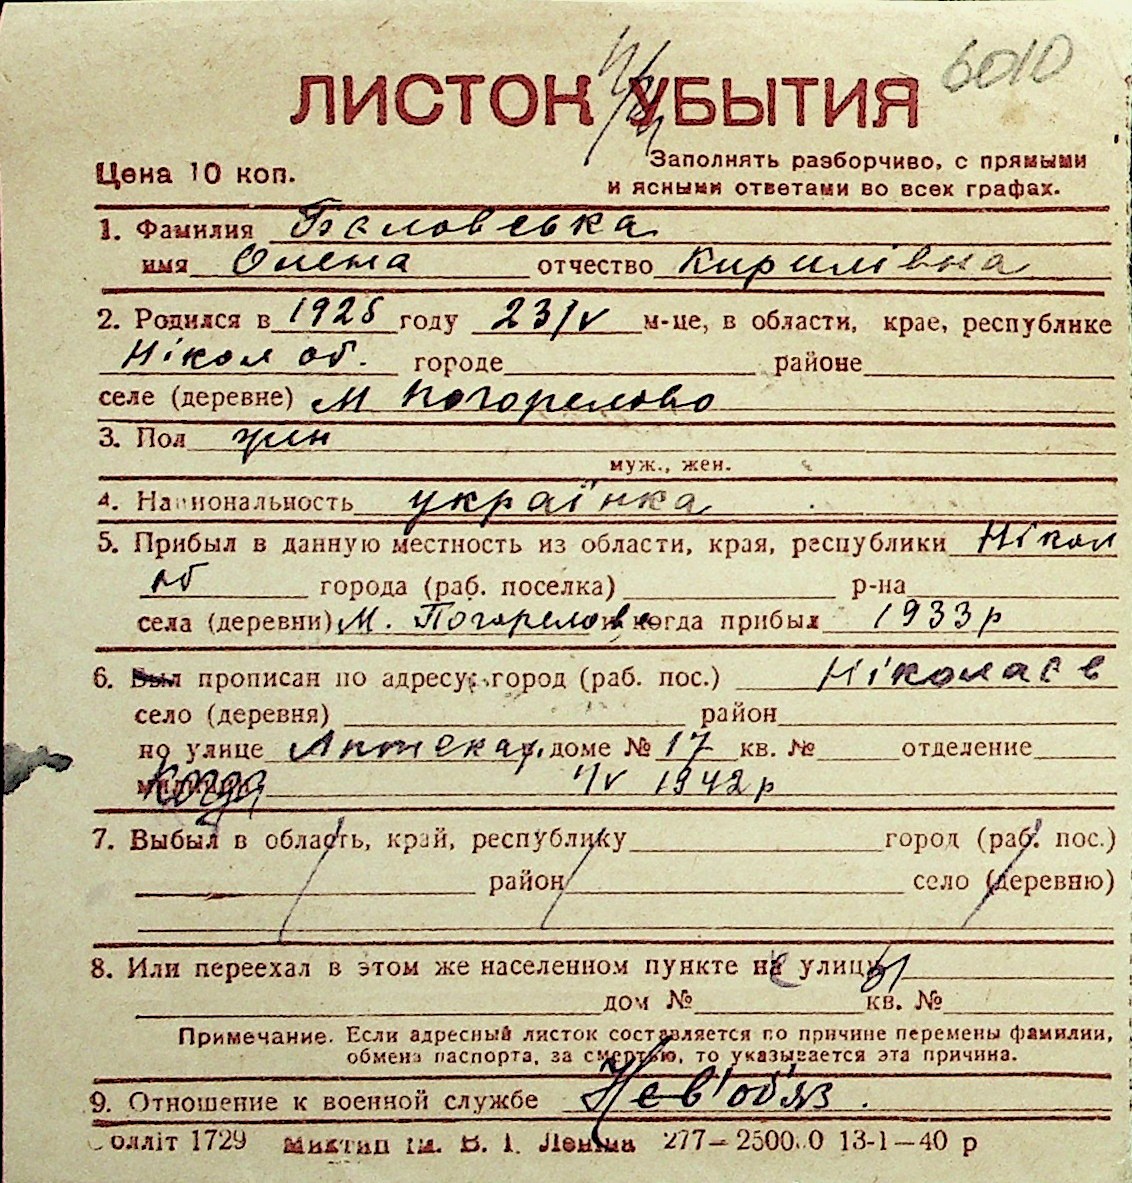 6010
ЛИСТОК УБЫТИЯ
Цена 10 коп.
Заполнять разборчиво, с прямыми
и ясными ответами во всех графах.
1. Фамилия
имя Олена отчество Кирилівна
2. Родился в 1925 году 23/V м-це, в области, крае, республике
Нікол об. городе районе
селе (деревне) М Погорелово
3. Пол жін
муж., жен.
4. Национальность українка
5. Прибыл в данную местность из области, края, республики Нікол
об города (раб. поселка) р-на
села (деревни) М. Погорелово и когда прибыл 1933 р
6. Был прописан по адресу: город (раб. пос.) Ніколаєв
село (деревня) район
по улице Аптекар. доме № 17 кв. № отделение
милиции когда 1/V 1942 р
7. Выбыл в область, край, республику город (раб. пос.)
район село (деревню)
8. Или переехал в этом же населенном пункте на улицу
дом № кв. №
Примечание. Если адресный листок составляется по причине перемены фамилии,
обмена паспорта, за смертью, то указывается эта причина.
9. Отношение к военной службе Нев'об'яз.
олліт 1729 Миктип ім. В. І. Леніна 277—2500.0 13-1—40 р